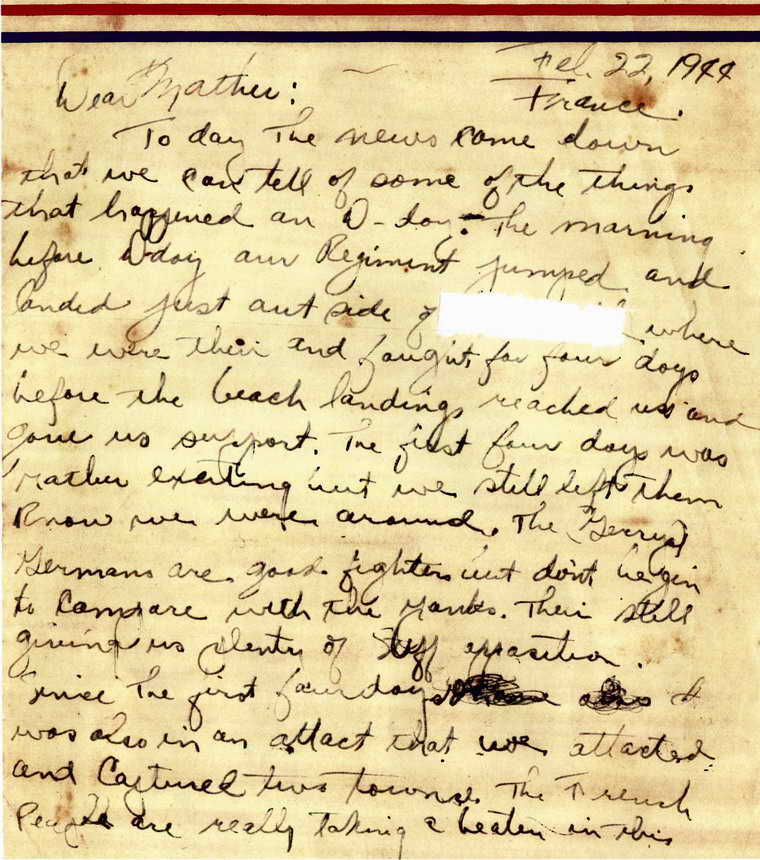 Feb. 22, 1944
Dear Mother:
France.
To day The news come down
that we can tell of some of the things
that happened on D-day. The morning
before D day our Regiment jumped and
landed just out side of where
we were their and fought for four days
before the beach landings reached us and
gave us support. The first four days was
rather exciting but we still left them
know we were around. The (Gerrys)
Germans are good fighters but dont begin
to Compare with the Yanks. Their still
giving us plenty of stiff opposition.
Since The first four days I
was also in an attact that we attacted
and Captured two towns. The French
People are really taking a beaten in this